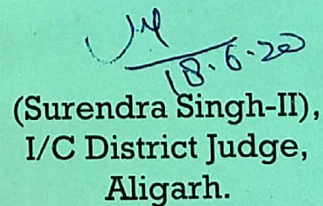 18.6.20
(Surendra Singh-II),
I/C District Judge,
Aligarh.